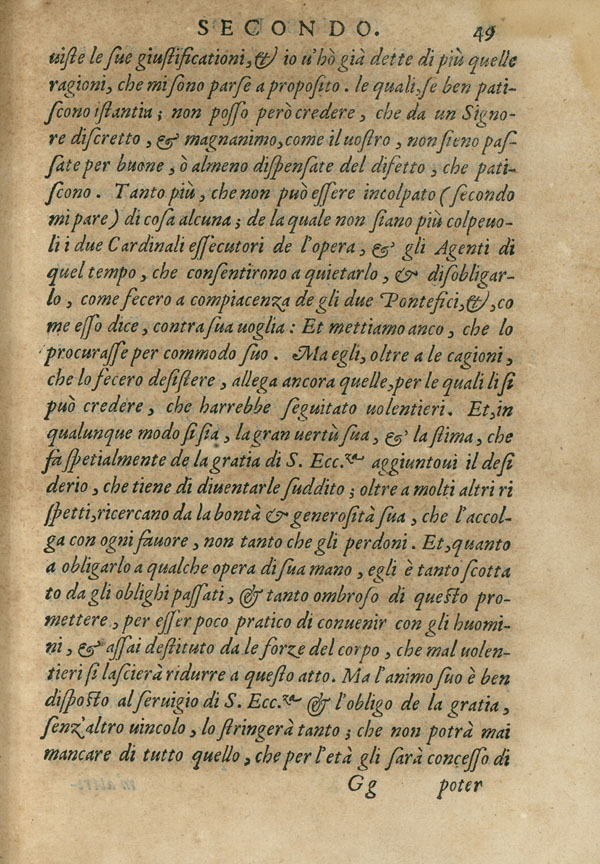 SECONDO. 49
uiste le sue giustificationi, & io u'hò già dette di più quelle
ragioni, che mi sono parse a proposito. le quali, se ben pati-
scono istantia; non posso però credere, che da un Signo-
re discretto, & magnanimo, come il uostro, non sieno pas-
sate per buone, ò almeno dispensate del difetto, che pati-
scono. Tanto più, che non può essere incolpato (secondo
mi pare) di cosa alcuna; de la quale non siano più colpeuo-
li i due Cardinali essecutori de l'opera, & gli Agenti di
quel tempo, che consentirono a quietarlo, & disobligar-
lo, come fecero a compiacenza de gli due Pontefici, &, co
me esso dice, contra sua uoglia: Et mettiamo anco, che lo
procurasse per commodo suo. Ma egli, oltre a le cagioni,
che lo fecero desistere, allega ancora quelle, per le quali li si
può credere, che harrebbe seguitato uolentieri. Et, in
qualunque modo si sia, la gran uertù sua, & la stima, che
fa spetialmente de la gratia di S. Ecc.za aggiuntoui il desi
derio, che tiene di diuentarle suddito; oltre a molti altri ri
spetti, ricercano da la bontà & generosità sua, che l'accol-
ga con ogni fauore, non tanto che gli perdoni. Et, quanto
a obligarlo a qualche opera di sua mano, egli è tanto scotta
to da gli oblighi passati, & tanto ombroso di questo pro-
mettere, per esser poco pratico di conuenir con gli huomi-
ni, & assai destituto da le forze del corpo, che mal uolen-
tieri si lascierà ridurre a questo atto. Ma l'animo suo è ben
disposto al seruigio di S. Ecc.za & l'obligo de la gratia,
senz'altro uincolo, lo stringerà tanto; che non potrà mai
mancare di tutto quello, che per l'età gli sarà concesso di
Gg poter